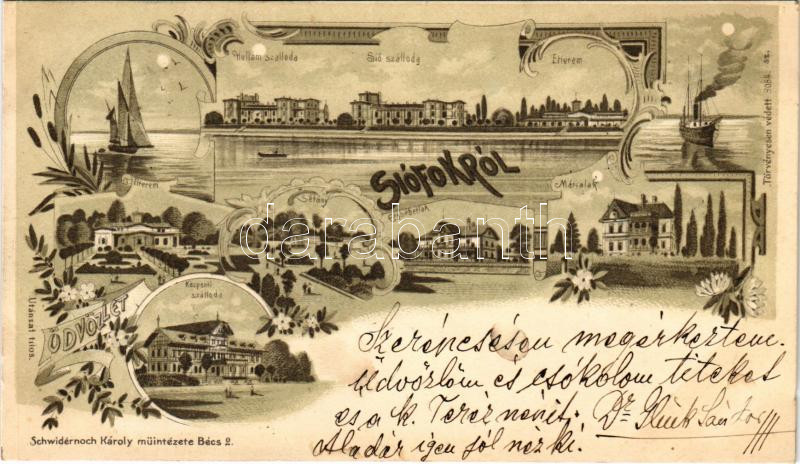 Hullám szálloda
Sió szálloda
Étterem
Törvényesen védett 3084 sz.
SIÓFOKRÓL
Étterem
Sétány
Mátyalak
darabanth.com
Központi
szálloda
ÜDVÖZLET
Utánzat tilos.
Szerencsésen megérkeztem.
Üdvözlöm és csókolom titeket
és a k. Teréz nénit. Dr Glück Sándor
Aladár igen jól néz ki.
Schwidernoch Károly müintézete Bécs 2.